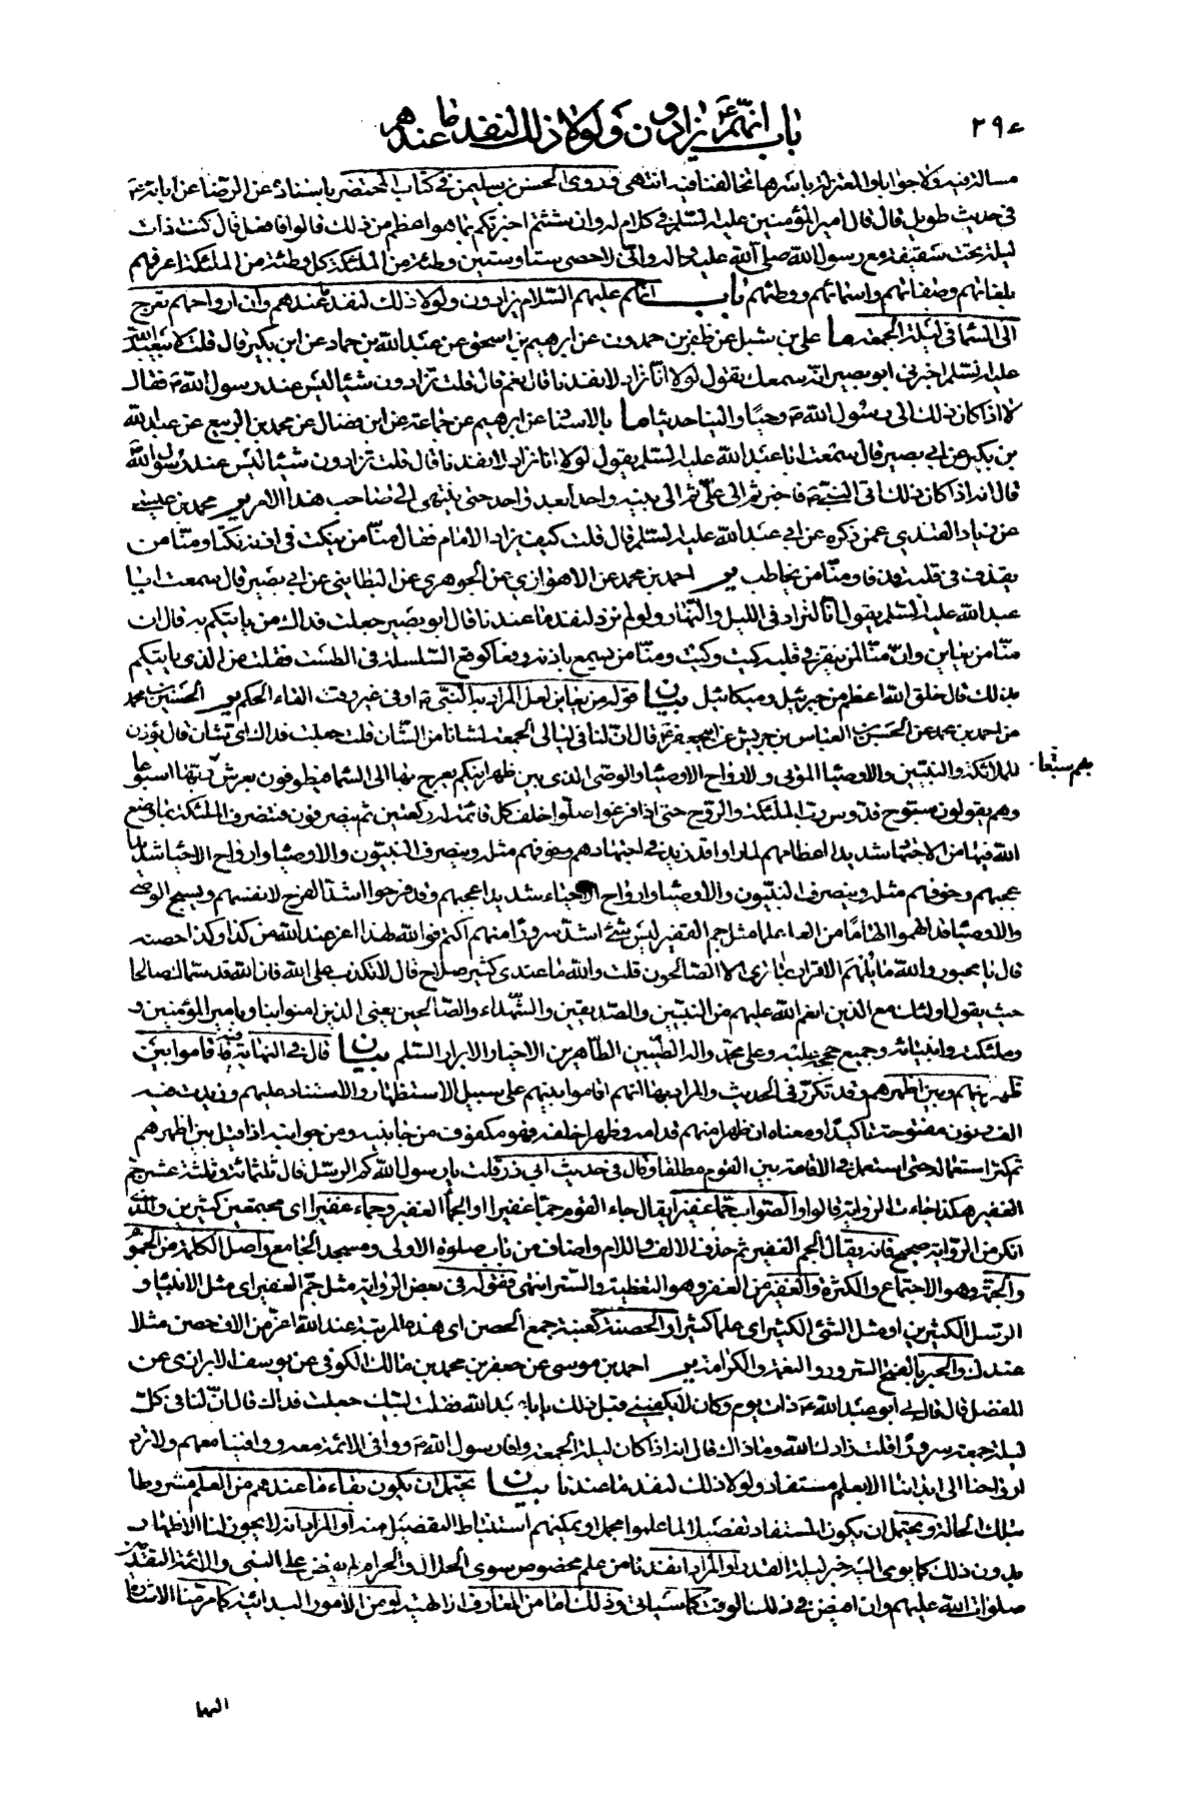 ٢٩٤
باب انهم ع يزادون ولولا ذلك لنفد ما عندهم
مسالة فيه ولا جوابا والمعتزلة باسرها تخالفنا فيه انتهى وروى الحسن بن سليمن في كتاب المحتضر باسناده عن الرضا عن ابائه ع
في حديث طويل قال قال امير المؤمنين عليه السلم في كلام له وان شئتم اخبرتكم بما هو اعظم من ذلك قالوا فافعل قال كنت ذات
ليلة تحت سقيفة مع رسول الله صلى الله عليه واله واني لاحصى ستا وستين وطئة من الملئكة كل وطئة من الملئكة اعرفهم
بلغاتهم وصفاتهم واسمائهم ووطئهم باب انهم عليهم السلام يزادون ولولا ذلك لنفد ما عندهم وان ارواحهم تعرج
الى السماء في ليلة الجمعة ما علي بن شبل عن ظفر بن حمدون عن ابرهيم بن اسحق عن عبد الله بن حماد عن ابن بكير قال قلت لابيعبد الله
عليه السلم اخبرني ابو بصير انه سمعك يقول لولا انا نزاد لانفدنا قال نعم قال قلت تزادون شيئا ليس عند رسول الله ص فقال
لا اذا كان ذلك الى رسول الله ص وحيا والينا حديثا ما بالاسناد عن ابرهيم عن جماعة عن ابن فضال عن محمد بن الربيع عن عبد الله
بن بكير عن ابي بصير قال سمعت ابا عبد الله عليه السلم يقول لولا انا نزاد لانفدنا قال قلت تزادون شيئا ليس عند رسول الله
قال انه اذا كان ذلك اتى النبي ص فاخبر ثم الى علي ثم الى بنيه واحدا بعد واحد حتى ينتهى الى صاحب هذا الامر ير محمد بن عيسى
عن زياد القندي عمن ذكره عن ابي عبد الله عليه السلم قال قلت كيف يزاد الامام فقال منا من ينكت في اذنه نكتا ومنا من
يقذف في قلبه قذفا ومنا من يخاطب ير احمد بن محمد عن الاهوازي عن الجوهري عن البطايني عن ابي بصير قال سمعت ابا
عبد الله عليه السلم يقول انا لنزاد في الليل والنهار ولو لم نزد لنفد ما عندنا قال ابو بصير جعلت فداك من ياتيكم به قال ان
منا من يعاين وان منا لمن ينقر في قلبه كيت وكيت ومنا من يسمع باذنه وقعا كوقع السلسلة في الطست فقلت من الذي ياتيكم
بذلك قال خلق الله اعظم من جبرئيل وميكائيل بيان قوله من يعاين لعل المراد به النبي ص او في غير وقت القاء الحكم ير الحسين بن محمد
عن احمد بن محمد عن الحسن بن العباس بن حريش عن ابيجعفر ع قال ان لنا في ليالي الجمعة لشانا من الشان قلت جعلت فداك اي شان قال يؤذن
للملائكة والنبيين والاوصياء الموتى ولارواح الاوصياء والوصي الذي بين ظهرانيكم يعرج بها الى السماء فيطوفون بعرش ربها اسبوعا
وهم يقولون سبوح قدوس رب الملئكة والروح حتى اذا فرغوا صلوا خلف كل قائمة له ركعتين ثم ينصرفون فتنصرف الملئكة بما وضع
الله فيها من الاجتهاد شديدا اعظامهم لما راوا وقد زيد في اجتهادهم وخوفهم مثله وينصرف النبيون والاوصياء وارواح الاحياء شديدا
عجبهم وخوفهم مثله وينصرف النبيون والاوصياء وارواح الاحياء شديدا عجبهم وقد فرحوا اشد الفرح لانفسهم ويصبح الوصي
والاوصياء قد الهموا الهاما من العلم علما مثل جم الغفير ليس شئ اشد سرورا منهم اكتم فوالله لهذا اعز عند الله من كذا وكذا حصنة
قال يا محبور والله ما يلهم الاقرار بما ترى الا الصالحون قلت والله ما عندي كثير صلاح قال لا تكذب على الله فان الله قد سماك صالحا
حيث يقول اولئك مع الذين انعم الله عليهم من النبيين والصديقين والشهداء والصالحين يعني الذين امنوا بنا وبامير المؤمنين و
وملئكته وانبيائه وجميع حججه عليه وعلى محمد واله الطيبين الطاهرين الاخيار الابرار السلم بيان قال في النهاية فيه فاقاموا بين
ظهرانيهم وبين اظهرهم وقد تكرر في الحديث والمراد بها انهم اقاموا بينهم على سبيل الاستظهار والاستناد عليهم وزيدت فيه
الف ونون مفتوحة تاكيدا ومعناه ان ظهرا منهم قدامه وظهرا خلفه فهو مكفوف من جانبيه ومن جوانبه اذا قيل بين اظهرهم
ثم كثر استعماله حتى استعمل في الاقامة بين القوم مطلقا وقال في حديث ابي ذر قلت يا رسول الله كم الرسل قال ثلثمائة وثلثة عشر جم
الغفير هكذا جاءت الرواية قالوا والصواب جماء غفيرا يقال جاء القوم جما غفيرا او الجماء الغفير وجماء غفيرا اي مجتمعين كثيرين والذي
انكر من الرواية صحيح فانه يقال الجم الغفير ثم حذف الالف واللام واضاف من باب صلوة الاولى ومسجد الجامع واصل الكلمة من الجموم
والجمة وهو الاجتماع والكثرة والغفير من الغفر وهو التغطية والستر انتهى فقوله في بعض الرواية مثل جم الغفير اي مثل الانبياء و
الرسل الكثيرين او مثل الشئ الكثير اي علما كثيرا والحصنة كعنبة جمع الحصن اي هذه المرتبة عند الله اعز من الاف حصن مثلا
عندك والحبر بالفتح السرور والنعمة والكرامة ير احمد بن موسى عن جعفر بن محمد بن مالك الكوفي عن يوسف الابزاري عن
المفضل قال قال لي ابو عبد الله ع ذات يوم وكان لا يكنيني قبل ذلك يا ابا عبد الله فقلت لبيك جعلت فداك قال ان لنا في كل
ليلة جمعة سرورا قلت زادك الله وما ذاك قال انه اذا كان ليلة الجمعة وافى رسول الله ص ووافى الائمة معه ووافينا معهم ولا ترد
ارواحنا الى ابداننا الا بعلم مستفاد ولولا ذلك لنفد ما عندنا بيان يحتمل ان يكون بقاء ما عندهم من العلم مشروطا
بتلك الحالة ويحتمل ان يكون المستفاد تفصيلا لما علموا مجملا ويمكنهم استنباط التفصيل منه او المراد انه لا يجوز لنا الاظهار
بدون ذلك كما يومي اليه خبر ليلة القدر او المراد انفدنا من علم مخصوص سوى الحلال والحرام لم يفض على النبي والائمة المتقدمين
صلوات الله عليهم وان افيض في ذلك الوقت كما سياتي وذلك اما من المعارف الالهية او من الامور البدائية كما مرت الاشارة
بهم ستعا
اليها